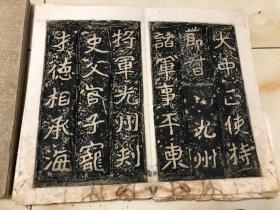 大中正使持
節督
光州
諸軍事平東
將軍光州刾
史父官子寵
才德相承海